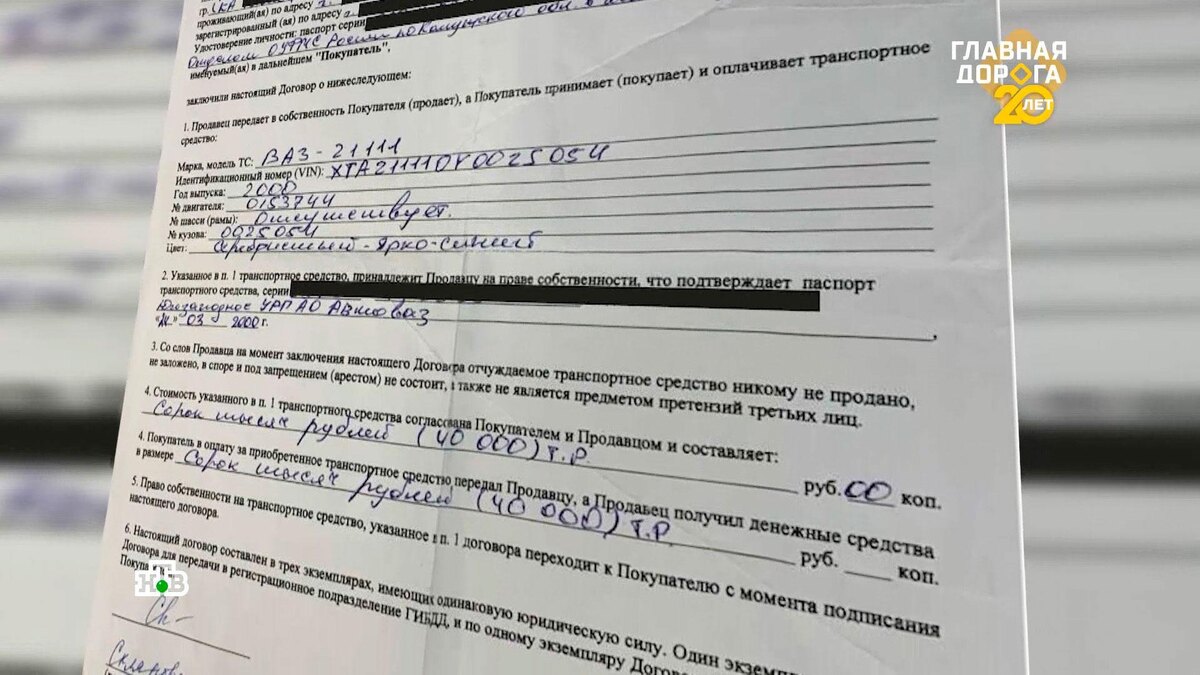 ГЛАВНАЯ
ДОРОГА
20 ЛЕТ
гр.
проживающий(ая) по адресу г.
зарегистрированный (ая) по адресу г
Удостоверение личности: паспорт серии
Отделом ОУФМС России по Калужской обл. в
именуемый(ая) в дальнейшем "Покупатель",
заключили настоящий Договор о нижеследующем:
1. Продавец передает в собственность Покупателя (продает), а Покупатель принимает (покупает) и оплачивает транспортное
средство:
Марка, модель ТС: ВАЗ-21111
Идентификационный номер (VIN): ХТА21111ОY0025054
Год выпуска: 2000
№ двигателя: 0153744
№ шасси (рамы): Отсутствует.
№ кузова: 0025054
Цвет: Серебристый-Ярко-синий
2. Указанное в п. 1 транспортное средство, принадлежит Продавцу на праве собственности, что подтверждает паспорт
транспортного средства, серии
УРП АО Автоваз
03 2000 г.
3. Со слов Продавца на момент заключения настоящего Договора отчуждаемое транспортное средство никому не продано,
не заложено, в споре и под запрещением (арестом) не состоит, а также не является предметом претензий третьих лиц.
4. Стоимость указанного в п. 1 транспортного средства согласована Покупателем и Продавцом и составляет:
Сорок тысяч рублей (40 000) т.р. руб. 00 коп.
4. Покупатель в оплату за приобретенное транспортное средство передал Продавцу, а Продавец получил денежные средства
в размере Сорок тысяч рублей (40 000) т.р. руб. ____ коп.
5. Право собственности на транспортное средство, указанное в п. 1 договора переходит к Покупателю с момента подписания
настоящего договора.
6. Настоящий договор составлен в трех экземплярах, имеющих одинаковую юридическую силу. Один экземп
Договора для передачи в регистрационное подразделение ГИБДД, и по одному экземпляру Догов
Покупа
НТВ